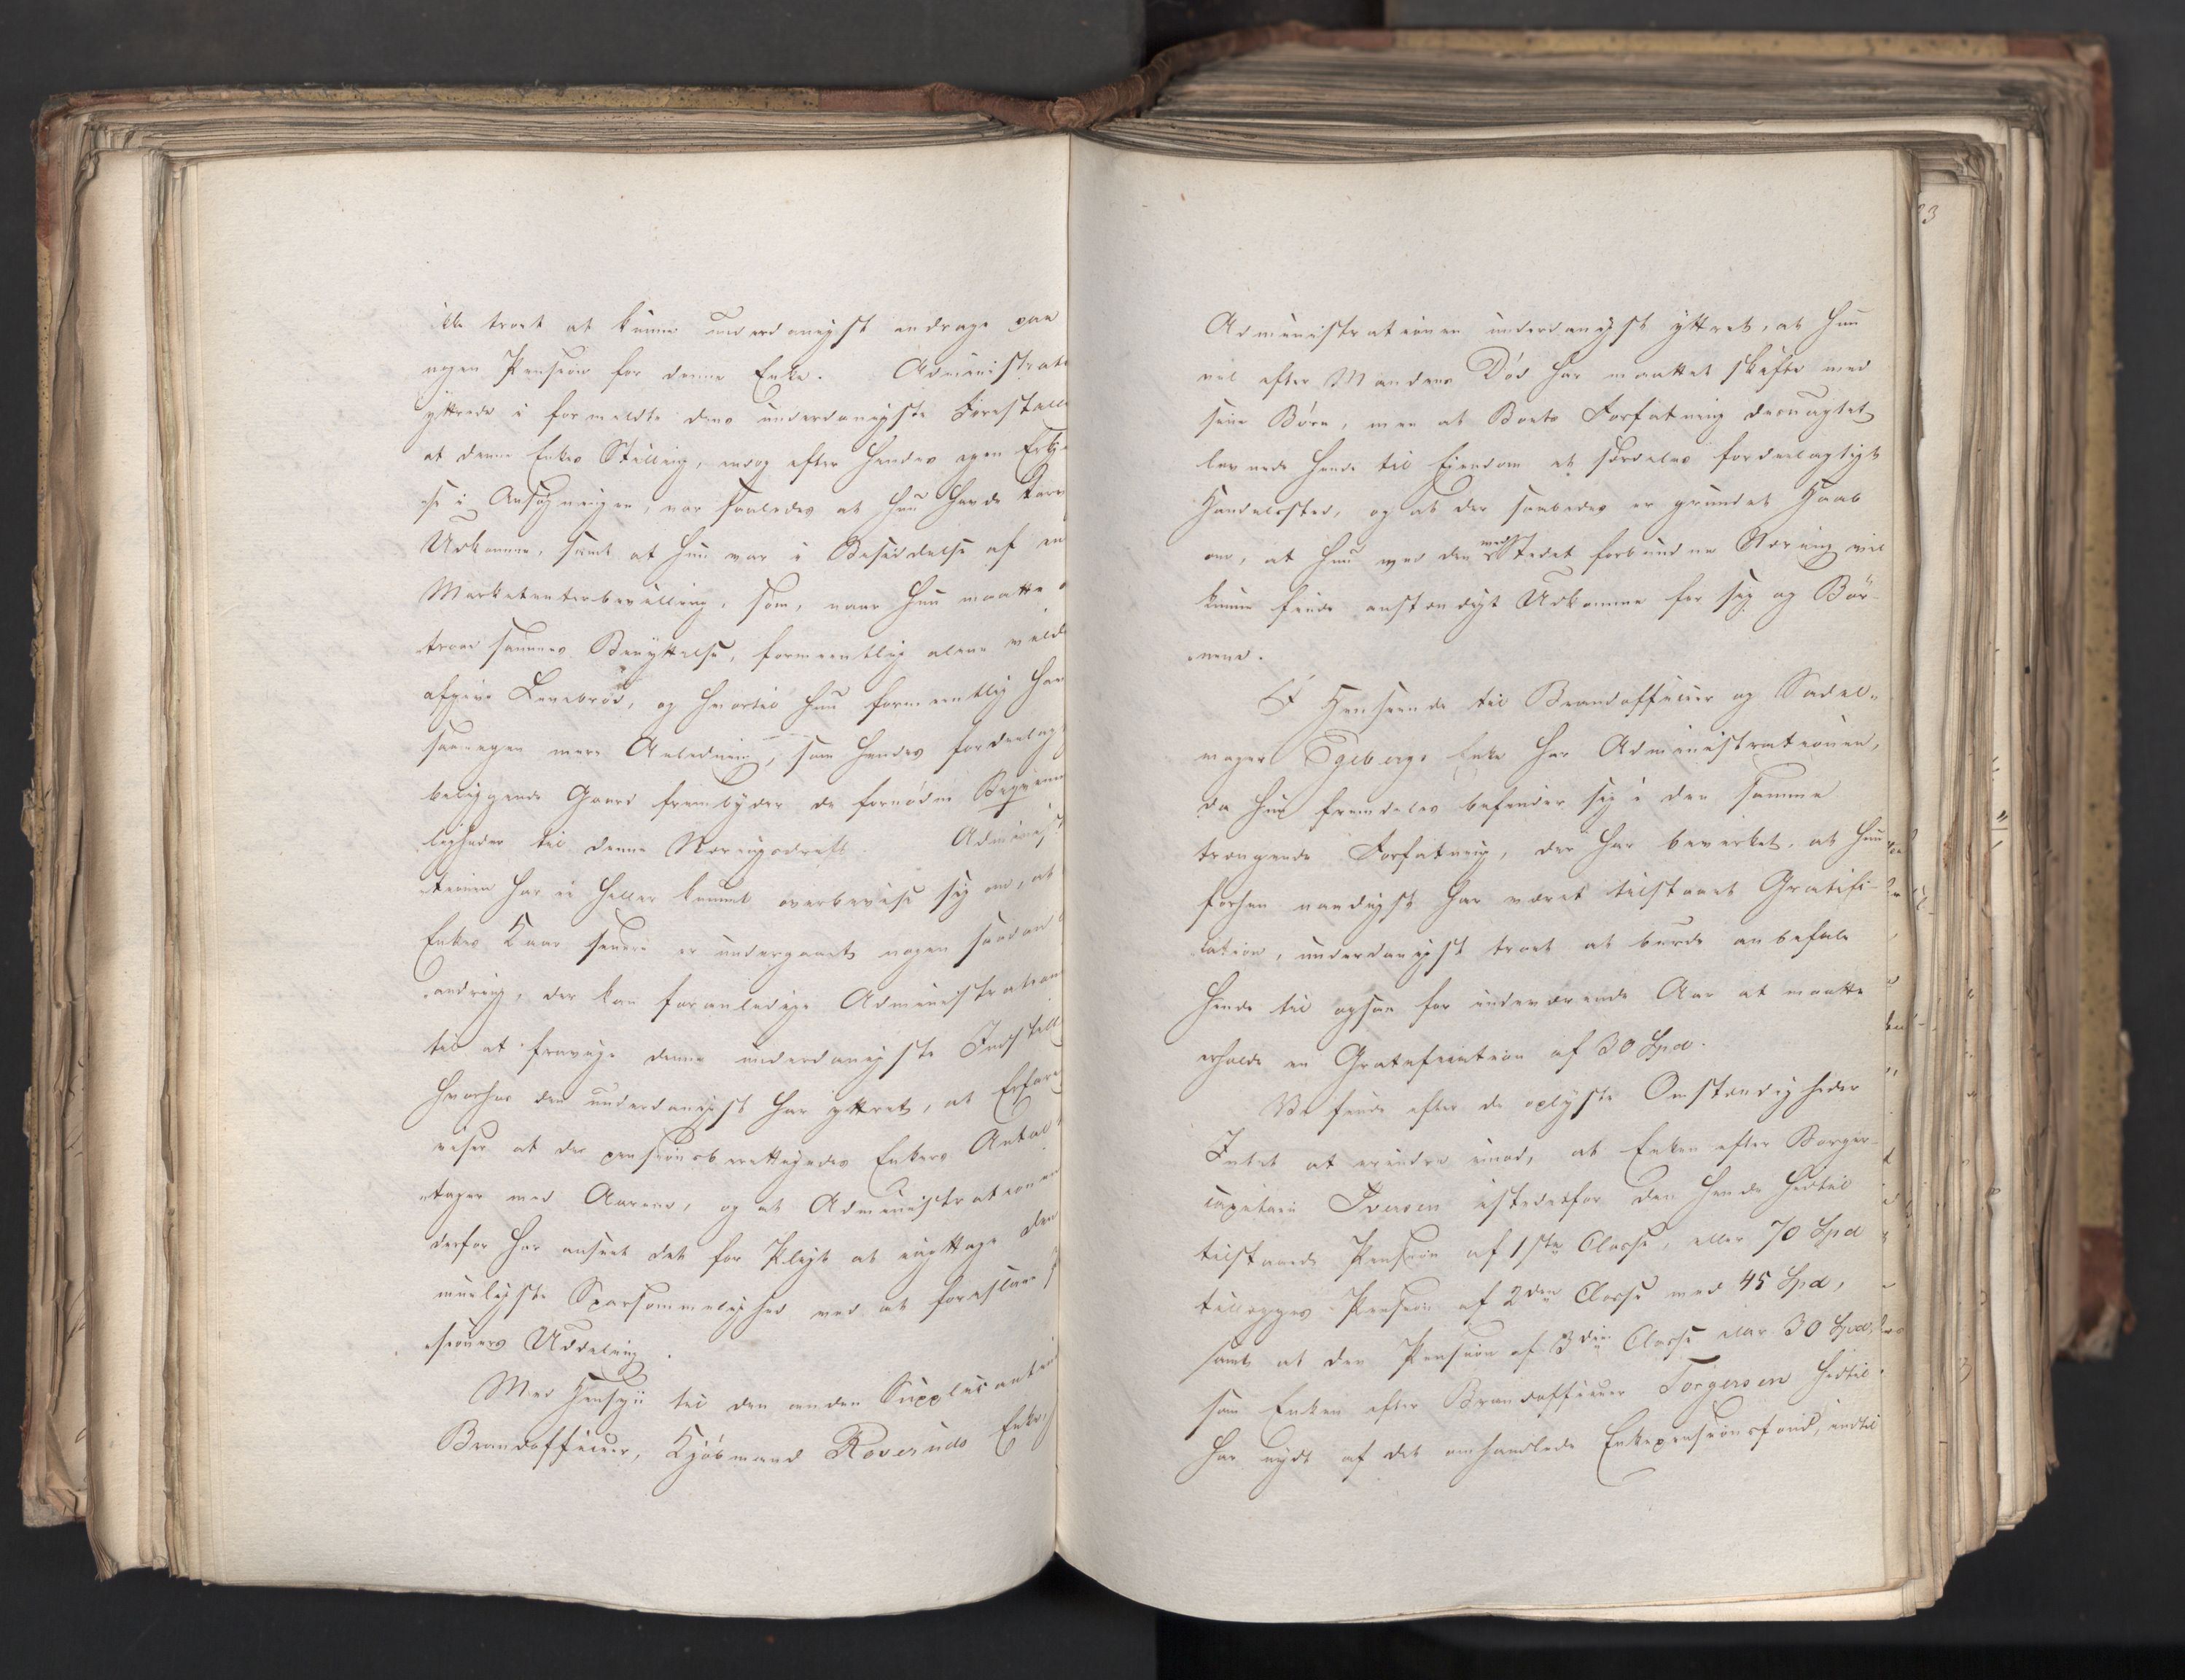 ikke troet at kunne underdanigst andrage paa
nogen Pension for denne Enke. Administrati
yttrede i formeldte dens underdanigste Forestill
at denne Enkes Stilling, endog efter hendes egen
se i Ansøgningen, var saaledes at hun havde
Udkomme, samt at hun var i Besiddelse af en
Marketenterbevilling, som, naar hun maatte
troe sammes Benyttelse, formeentlig alene vilde
afgive Levebrød, og hvortil hun formeentlig har
saameget mere Anledning, som hendes fordeelag
beliggende Gaard frembyder de fornødne Beqvem
ligheder til denne Næringsdrift. Administ
rationen har ei heller kunnet overbevise sig om, at
Enkes Kaar senere er undergaaet nogen saadan
andring, der kan foranledige Administration
til at fravige denne underdanigste Indstill
hvorhos den underdanigst har yttret, at Erfare
viser at de pensionsberettigedes Enkers Antal
tager med Aarene, og at Administrationen
derfor har anseet det for Pligt at iagttage den
muligste Sparsommelighed ved at foreslaae
sioners Uddeling.
Med Hensyn til den anden Supplicantin
Brandofficeer, Kjøbmand Roveruds Enke,
23
Administrationen underdanigst yttret, at hun
vel efter Mandens Død har maattet skifte med
sine Børn, men at Boets Forfatning desuagtet
levnede hende til Eiendom et særdeles fordeelagtigt
Handelssted, og at der saaledes er grundet Haab
om, at hun ved den med Stedet forbundne Næring vil
kunne finde anstændigt Udkomme for sig og Bør-
nene.
I Henseende til Brandofficeer og Sadel-
mager Egebergs Enke har Administrationen,
da hun fremdeles befinder sig i den samme
trængende Forfatning, der har bevirket, at hun
forhen naadigst har været tilstaaet Gratifi-
cation, underdanigst troet at burde anbefale
hende til ogsaa for indeværende Aar at maatte
erholde en Gratification af 30 Spd.
Vi finde efter de oplyste Omstændigheder
Intet at erindre imod, at Enken efter Borger-
capitain Iversen istedetfor den hende hidtil
tilstaaede Pension af 1ste Classe, eller 70 Spd
tillægges Pension af 2den Classe med 45 Spd,
samt at den Pension af 3die Classe eller 30 Spd,
som Enken efter Brandofficeer Torgersen hidtil
har nydt af det omhandlede Enkepensionsfond, indtil